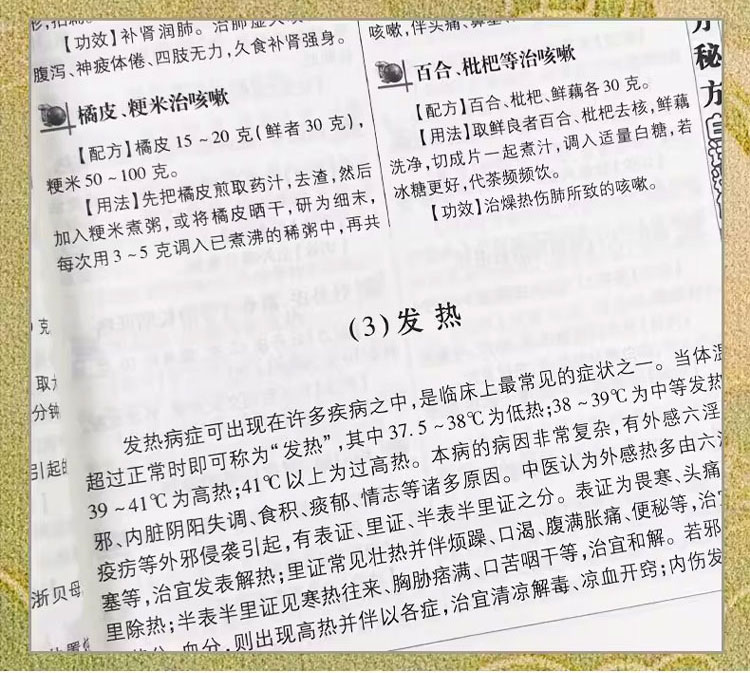 【功效】补肾润肺。治肺虚
腹泻、神疲体倦、四肢无力,久食补肾强身。
橘皮、粳米治咳嗽
【配方】橘皮 15 ~ 20 克(鲜者 30 克),
粳米 50 ~ 100 克。
【用法】先把橘皮煎取药汁,去渣,然后
加入粳米煮粥,或将橘皮晒干,研为细末,
每次用 3 ~ 5 克调入已煮沸的稀粥中,再共
咳嗽,伴头痛、鼻塞
百合、枇杷等治咳嗽
【配方】百合、枇杷、鲜藕各 30 克。
【用法】取鲜良者百合、枇杷去核,鲜藕
洗净,切成片一起煮汁,调入适量白糖,若
冰糖更好,代茶频频饮。
【功效】治燥热伤肺所致的咳嗽。
秘
方
克
取
分钟
引起的
浙贝母
(3)发 热
发热病症可出现在许多疾病之中,是临床上最常见的症状之一。当体温
超过正常时即可称为“发热”,其中 37.5 ~ 38℃为低热;38 ~ 39℃为中等发热
39 ~ 41℃为高热;41℃以上为过高热。本病的病因非常复杂,有外感六淫
邪、内脏阴阳失调、食积、痰郁、情志等诸多原因。中医认为外感热多由六淫
疫疠等外邪侵袭引起,有表证、里证、半表半里证之分。表证为畏寒、头痛
塞等,治宜发表解热;里证常见壮热并伴烦躁、口渴、腹满胀痛、便秘等,治宜
里除热;半表半里证见寒热往来、胸胁痞满、口苦咽干等,治宜和解。若邪
血分,则出现高热并伴以各症,治宜清凉解毒、凉血开窍;内伤发